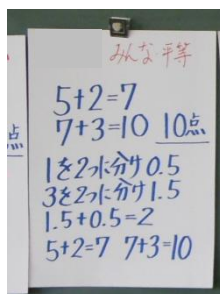 みんな平等
5+2=7
7+3=10 10点
1を2つに分け0.5
3を2つに分け1.5
1.5+0.5=2
5+2=7 7+3=10
点